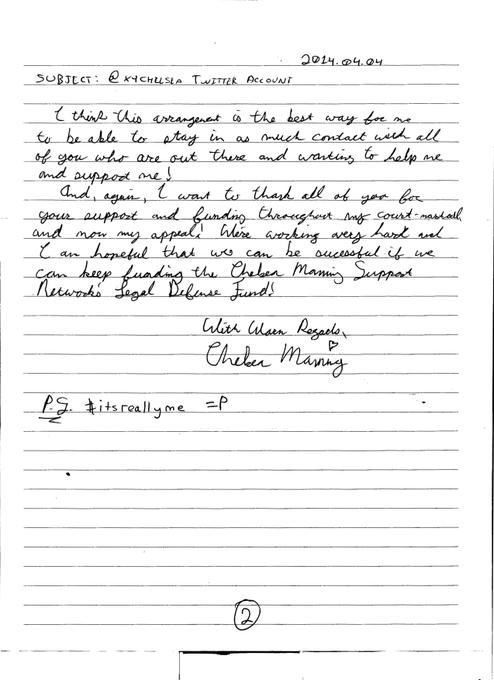 2014.04.04
SUBJECT: @xychelsea Twitter Account
I think this arrangement is the best way for me
to be able to stay in as much contact with all
of you who are out there and wanting to help me
and support me!
And, again, I want to thank all of you for
your support and funding throughout my court-martial,
and now my appeal! We're working very hard and
I am hopeful that we can be successful if we
can keep funding the Chelsea Manning Support
Network's Legal Defense Fund!
With Warm Regards,
Chelsea Manning
P.S. #itsreallyme =P
2